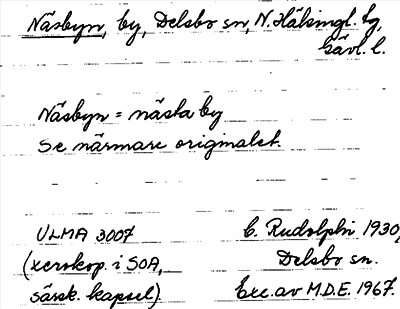 Näsbyn, by, Delsbo sn, N. Hälsingl. tg,
Gävl. l.
Näsbyn = nästa by
Se närmare originalet.
ULMA 3007 C. Rudolphi 1930,
(xerokop. i SOA, Delsbo sn.
särsk. kapsel). Exc. av M.D.E. 1967.